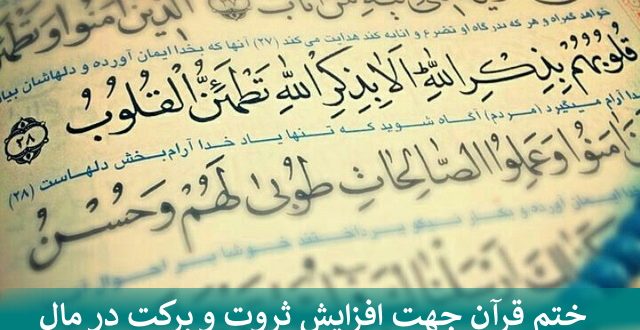 الَّذينَ امَنُوا وَتَطْمَئِنُّ
خواهد گمراه و هر که بدرگاه او تضرع و انابه کند هدایت می کند (۲۷) آنها که بخدا ایمان آورده و دلهاشان بیاد
قُلُوبُهُمْ بِذِكْرِ اللهِ اَلا بِذِكْرِ اللهِ تَطْمَئِنُّ الْقُلُوبُ ٢٨
خدا آرام میگیرد (مردم) آگاه شوید که تنها یاد خدا آرام‌بخش دلهاست (۲۸)
امَنُوا وَعَمِلُوا الصّالِحاتِ طُوبى لَهُمْ وَحُسْنُ
ایمان آورده و بکار نیکو پرداختند خوشا بر احوال
ختم قرآن جهت افزایش ثروت و برکت در مال